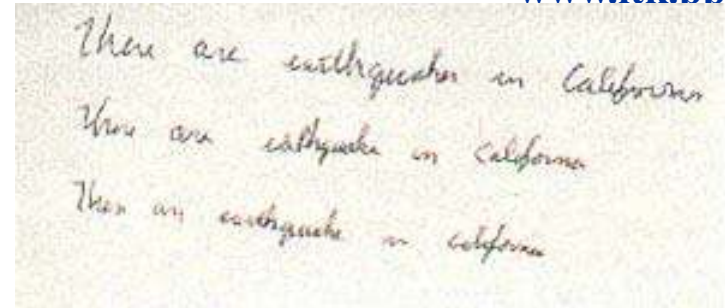 There are earthquakes in California
There are eathquake in California
Then an earthquake in california